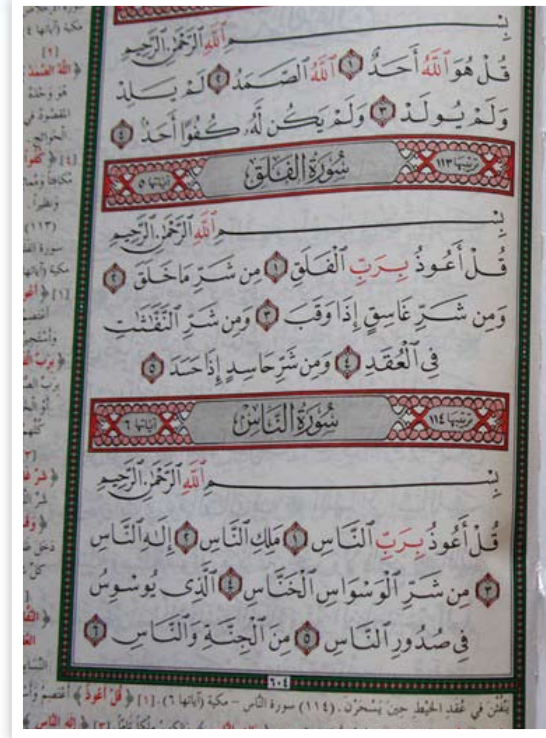 بِسْمِ ٱللَّهِ ٱلرَّحْمَٰنِ ٱلرَّحِيمِ
قُلْ هُوَ ٱللَّهُ أَحَدٌ ١ ٱللَّهُ ٱلصَّمَدُ ٢ لَمْ يَلِدْ
وَلَمْ يُولَدْ ٣ وَلَمْ يَكُن لَّهُۥ كُفُوًا أَحَدٌۢ ٤
ترتيبها ١١٣ سُورَةُ الفَلَقِ آياتها ٥
بِسْمِ ٱللَّهِ ٱلرَّحْمَٰنِ ٱلرَّحِيمِ
قُلْ أَعُوذُ بِرَبِّ ٱلْفَلَقِ ١ مِن شَرِّ مَا خَلَقَ ٢
وَمِن شَرِّ غَاسِقٍ إِذَا وَقَبَ ٣ وَمِن شَرِّ ٱلنَّفَّٰثَٰتِ
فِى ٱلْعُقَدِ ٤ وَمِن شَرِّ حَاسِدٍ إِذَا حَسَدَ ٥
ترتيبها ١١٤ سُورَةُ النَّاسِ آياتها ٦
بِسْمِ ٱللَّهِ ٱلرَّحْمَٰنِ ٱلرَّحِيمِ
قُلْ أَعُوذُ بِرَبِّ ٱلنَّاسِ ١ مَلِكِ ٱلنَّاسِ ٢ إِلَٰهِ ٱلنَّاسِ
٣ مِن شَرِّ ٱلْوَسْوَاسِ ٱلْخَنَّاسِ ٤ ٱلَّذِى يُوَسْوِسُ
فِى صُدُورِ ٱلنَّاسِ ٥ مِنَ ٱلْجِنَّةِ وَٱلنَّاسِ ٦
٦٠٤
يَنْفُثْنَ في عُقَدِ الخَيْطِ حِينَ يَسْحَرْنَ. (١١٤) سورة النَّاس – مكية (آياتها ٦). [١] ﴿قُلْ أَعُوذُ﴾ أعتصم